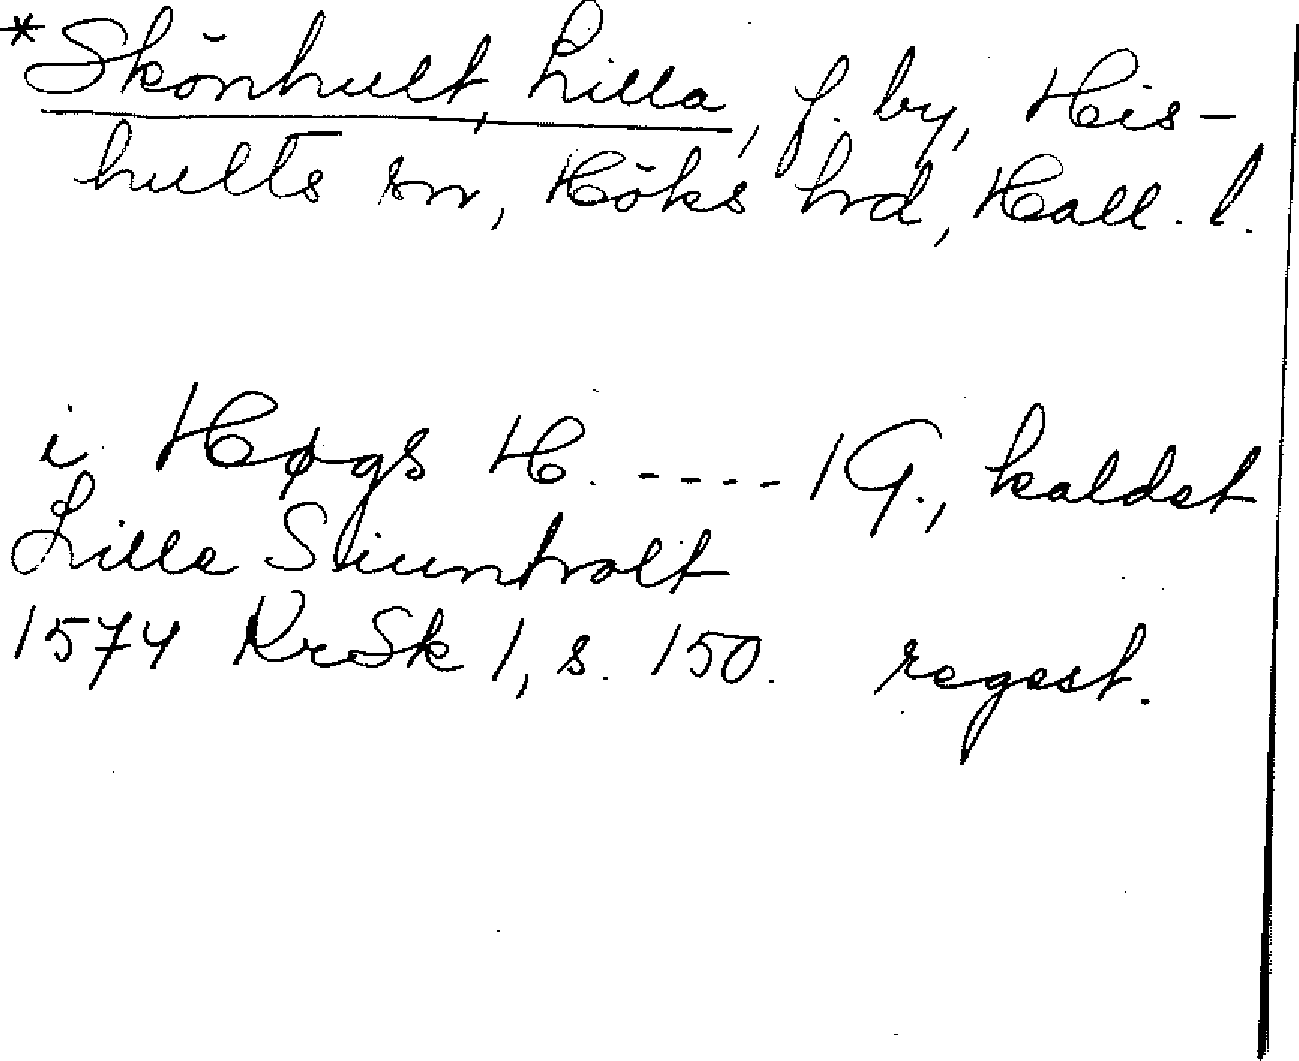 *Skönhult, Lilla, f. by, His-
hults sn, Höks hrd, Hall. l.
i Høgs H. ---- 1 G., kaldet
Lille Siunholt
1574 KrSk 1, s. 150. regest.